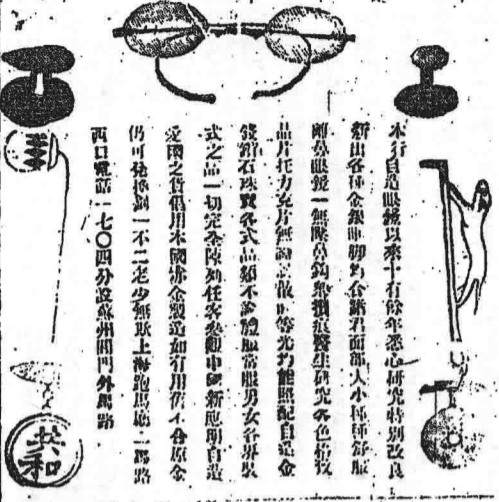 本行自造眼鏡以來十有餘年悉心研究特別改良
新出各種金銀脚均合諸君面部大小種種舒服
離鼻眼鏡一無壓鼻鈎無損痕醫生研究各色
晶片托力克片無論光等光均能照配自造金
石珠寶各式品類不論體服常服男女各界裝
式之品一切完全陳列任客參觀中國新應期自造
愛國之貨俱用本國赤金製造如有用舊不合原金
仍可兌換劃一不二老少無欺上海跑馬廳二馬路
西口電話一七〇四分設蘇州閶門外馬路
共和